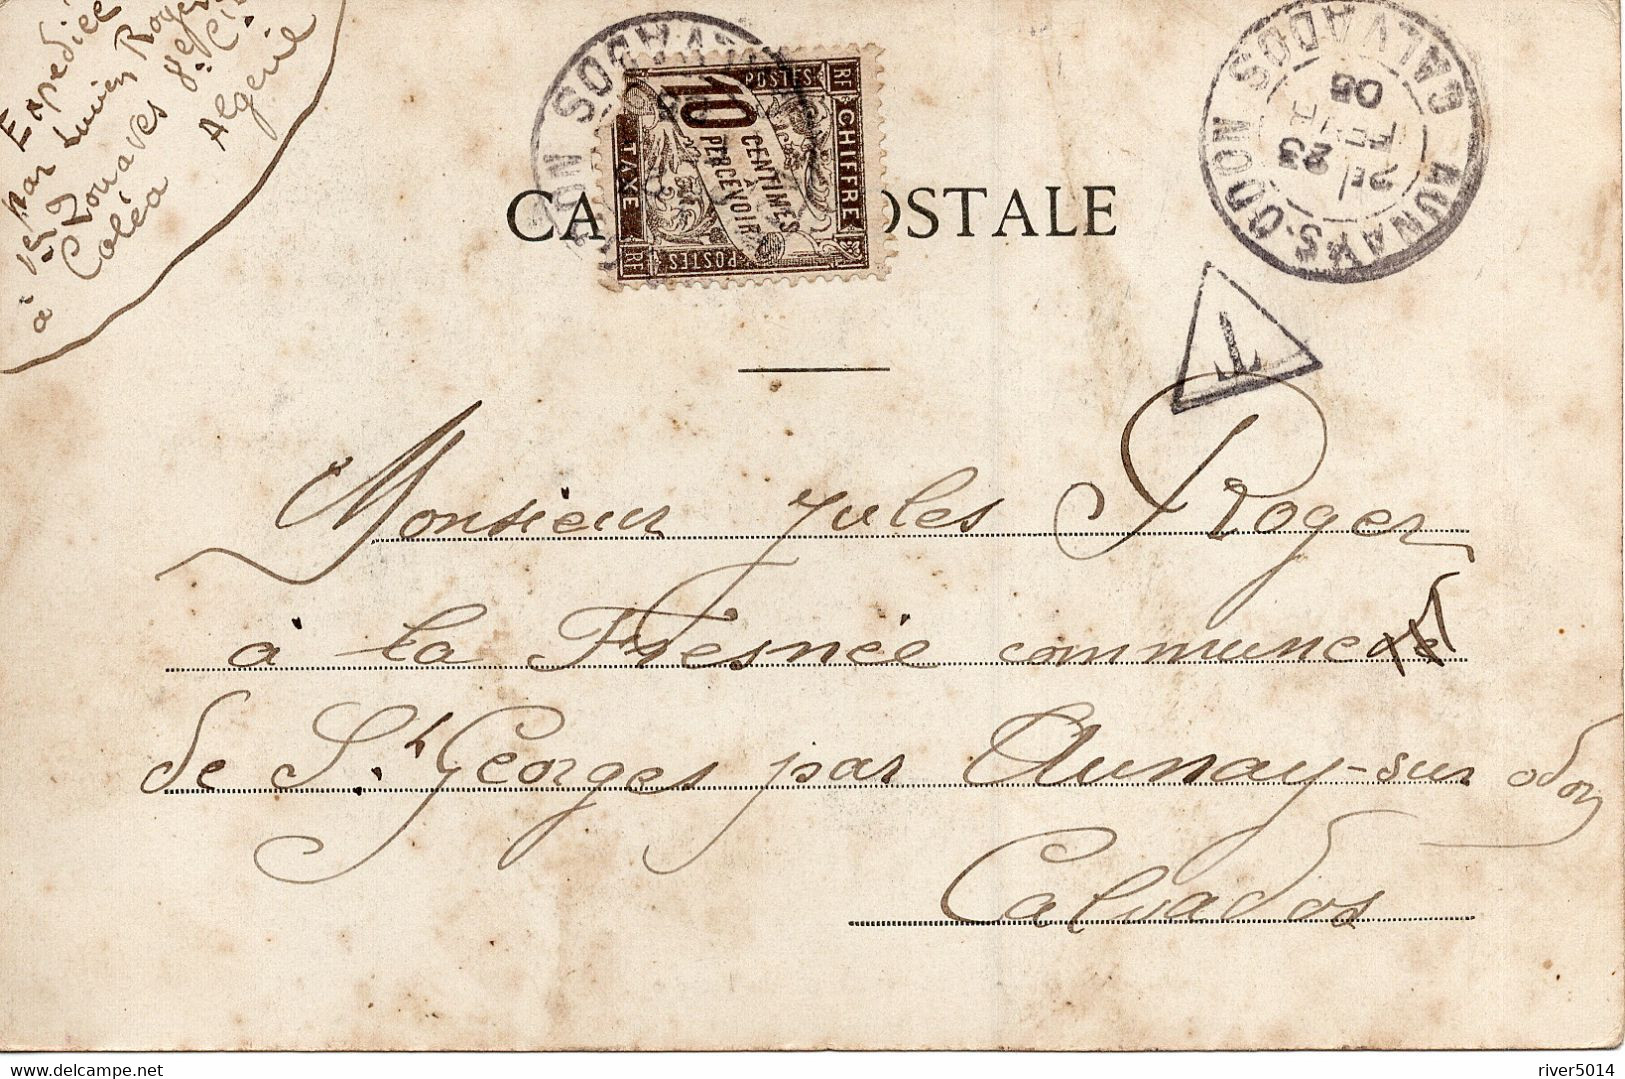 Expediée
par Lucien Roger
Zouaves 8e Cie
à Coléa
Algérie
CALVADOS
RF CHIFFRE
TAXE RF
POSTES
POSTES
10
CENTIMES
À
PERCEVOIR
CA OSTALE
AUNAY-S-ODON
CALVADOS
2E
23
FEVR
05
T
Monsieur Jules Roger
à la Fresnée commune
de St. Georges par Aunay-sur odon
Calvados
delcampe.net
river5014